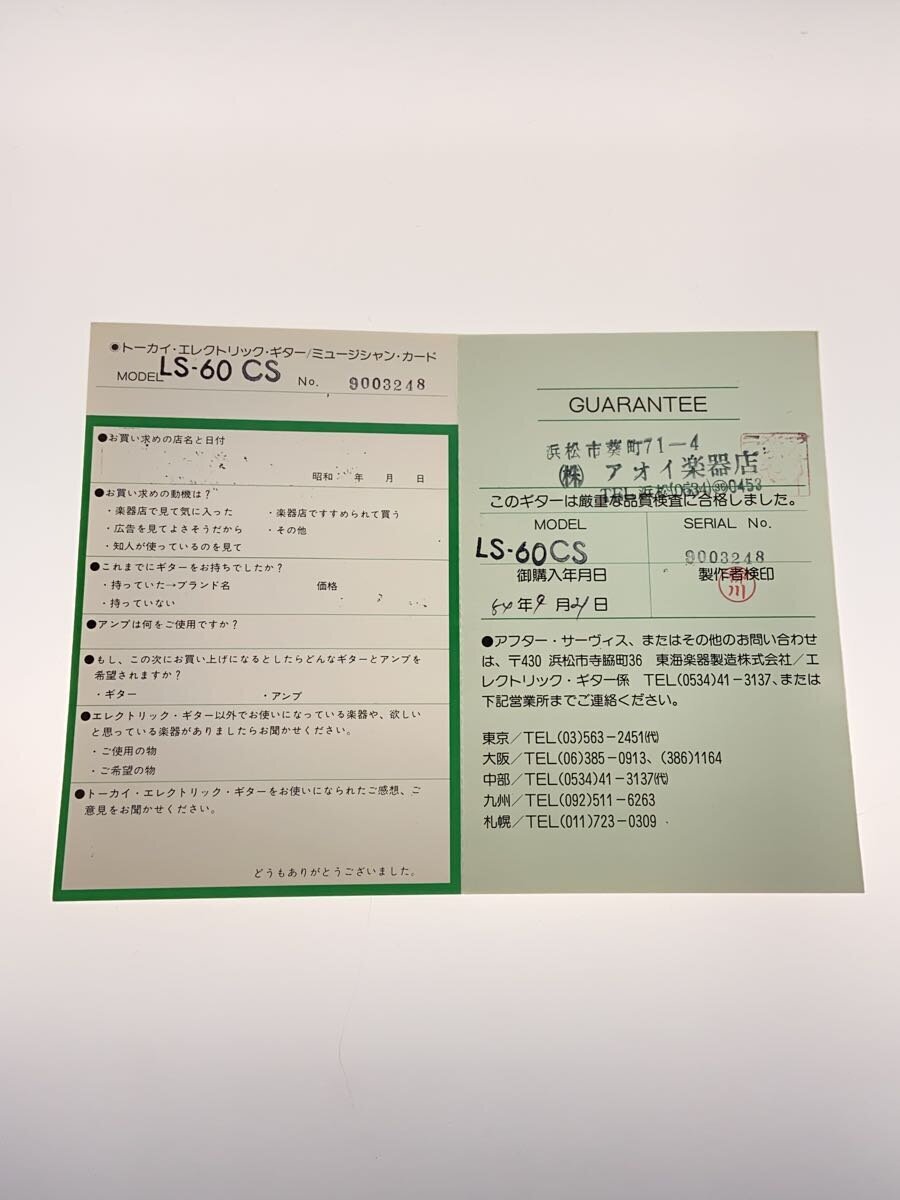 ●トーカイ・エレクトリック・ギター/ミュージシャン・カード
MODEL LS-60 CS No. 9003248
●お買い求めの店名と日付
昭和 年 月 日
●お買い求めの動機は?
・楽器店で見て気に入った ・楽器店ですすめられて買う
・広告を見てよさそうだから ・その他
・知人が使っているのを見て
●これまでにギターをお持ちでしたか?
・持っていた→ブランド名 価格
・持っていない
●アンプは何をご使用ですか?
●もし、この次にお買い上げになるとしたらどんなギターとアンプを
希望されますか?
・ギター ・アンプ
●エレクトリック・ギター以外でお使いになっている楽器や、欲しい
と思っている楽器がありましたらお聞かせください。
・ご使用の物
・ご希望の物
●トーカイ・エレクトリック・ギターをお使いになられたご感想、ご
意見をお聞かせください。
どうもありがとうございました。
GUARANTEE
浜松市葵町71-4
(株) アオイ楽器店
TEL 浜松(0534)㊱0453
このギターは厳重な品質検査に合格しました。
MODEL SERIAL No.
LS-60CS 9003248
御購入年月日 製作者検印
年9月21日
川
●アフター・サーヴィス、またはその他のお問い合わせ
は、〒430 浜松市寺脇町36 東海楽器製造株式会社/エ
レクトリック・ギター係 TEL(0534)41-3137、または
下記営業所までご連絡ください。
東京/TEL(03)563-2451(代)
大阪/TEL(06)385-0913、(386)1164
中部/TEL(0534)41-3137(代)
九州/TEL(092)511-6263
札幌/TEL(011)723-0309